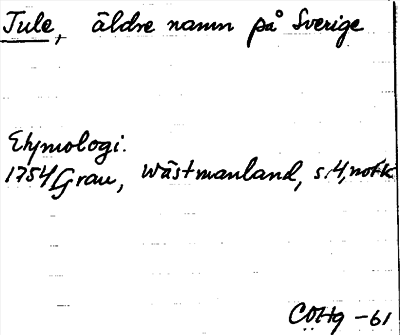 Tule, äldre namn på Sverige
Etymologi.
1754 Grau, Wästmanland, s. 4, not k
COHg -61